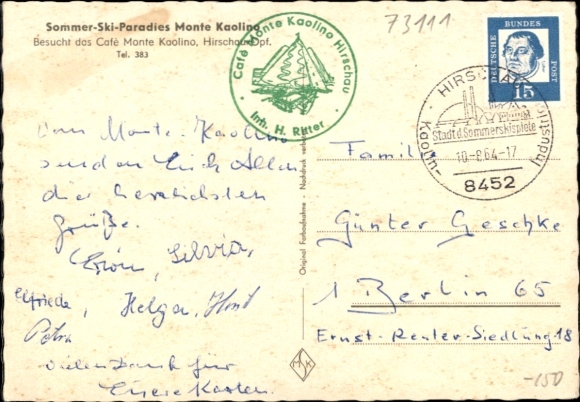 Sommer-Ski-Paradies Monte Kaolino
Besucht das Café Monte Kaolino, Hirschau Opf.
Tel. 383
Café Monte Kaolino Hirschau
Inh. H. Ritter
73111
DEUTSCHE BUNDESPOST
15
HIRSCHAU
Stadt d. Sommerskispiele
10-8.64-17
8452
Vom Monte-Kaolino
senden Euch Allen
die herzlichsten
Grüße.
Erwin, Silvia,
Elfriede, Helga, Horst
Petra
Vielen Dank für
Eure Karten.
Original Farbaufnahme · Nachdruck verboten
Familie
Günter Geschke
1 Berlin 65
Ernst-Reuter-Siedlung 18
-150